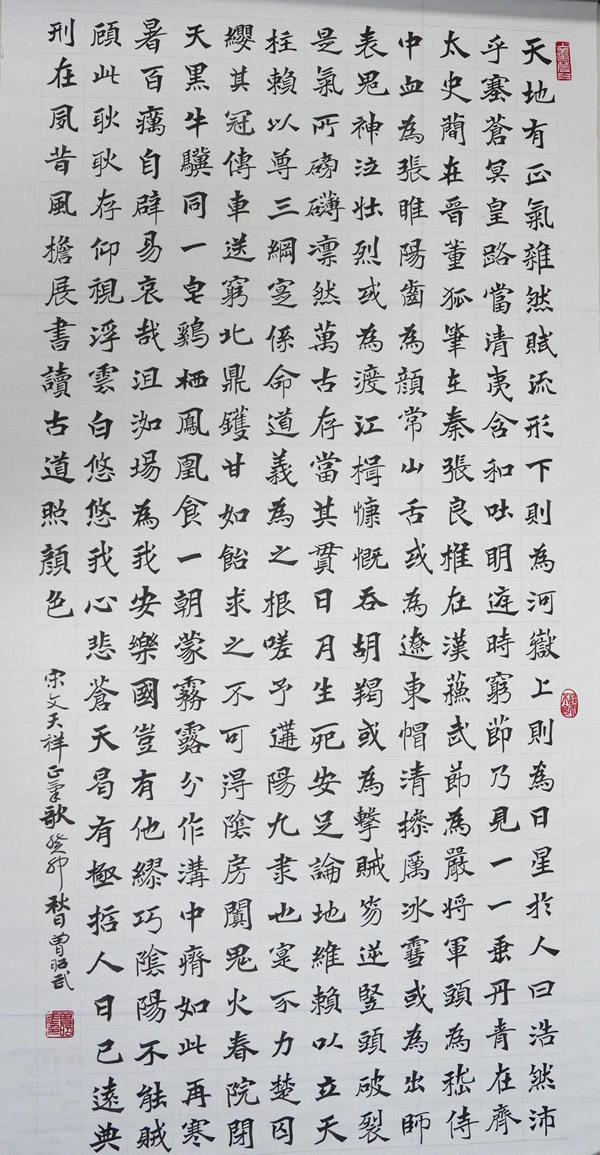 天地有正氣雜然賦流形下則為河嶽上則為日星於人曰浩然沛
乎塞蒼冥皇路當清夷含和吐明庭時窮節乃見一一垂丹青在齊
太史簡在晉董狐筆在秦張良椎在漢蘇武節為嚴將軍頭為嵇侍
中血為張睢陽齒為顏常山舌或為遼東帽清操厲冰雪或為出師
表鬼神泣壯烈或為渡江楫慷慨吞胡羯或為擊賊笏逆豎頭破裂
是氣所磅礴凜然萬古存當其貫日月生死安足論地維賴以立天
柱賴以尊三綱寔係命道義為之根嗟予遘陽九隸也寔不力楚囚
纓其冠傳車送窮北鼎鑊甘如飴求之不可得陰房闃鬼火春院閉
天黑牛驥同一皂鷄栖鳳凰食一朝蒙霧露分作溝中瘠如此再寒
暑百癘自辟易哀哉沮洳場為我安樂國豈有他繆巧陰陽不能賊
顧此耿耿存仰視浮雲白悠悠我心悲蒼天曷有極哲人日已遠典
刑在夙昔風檐展書讀古道照顏色
宋文天祥正氣歌癸卯秋日曾武